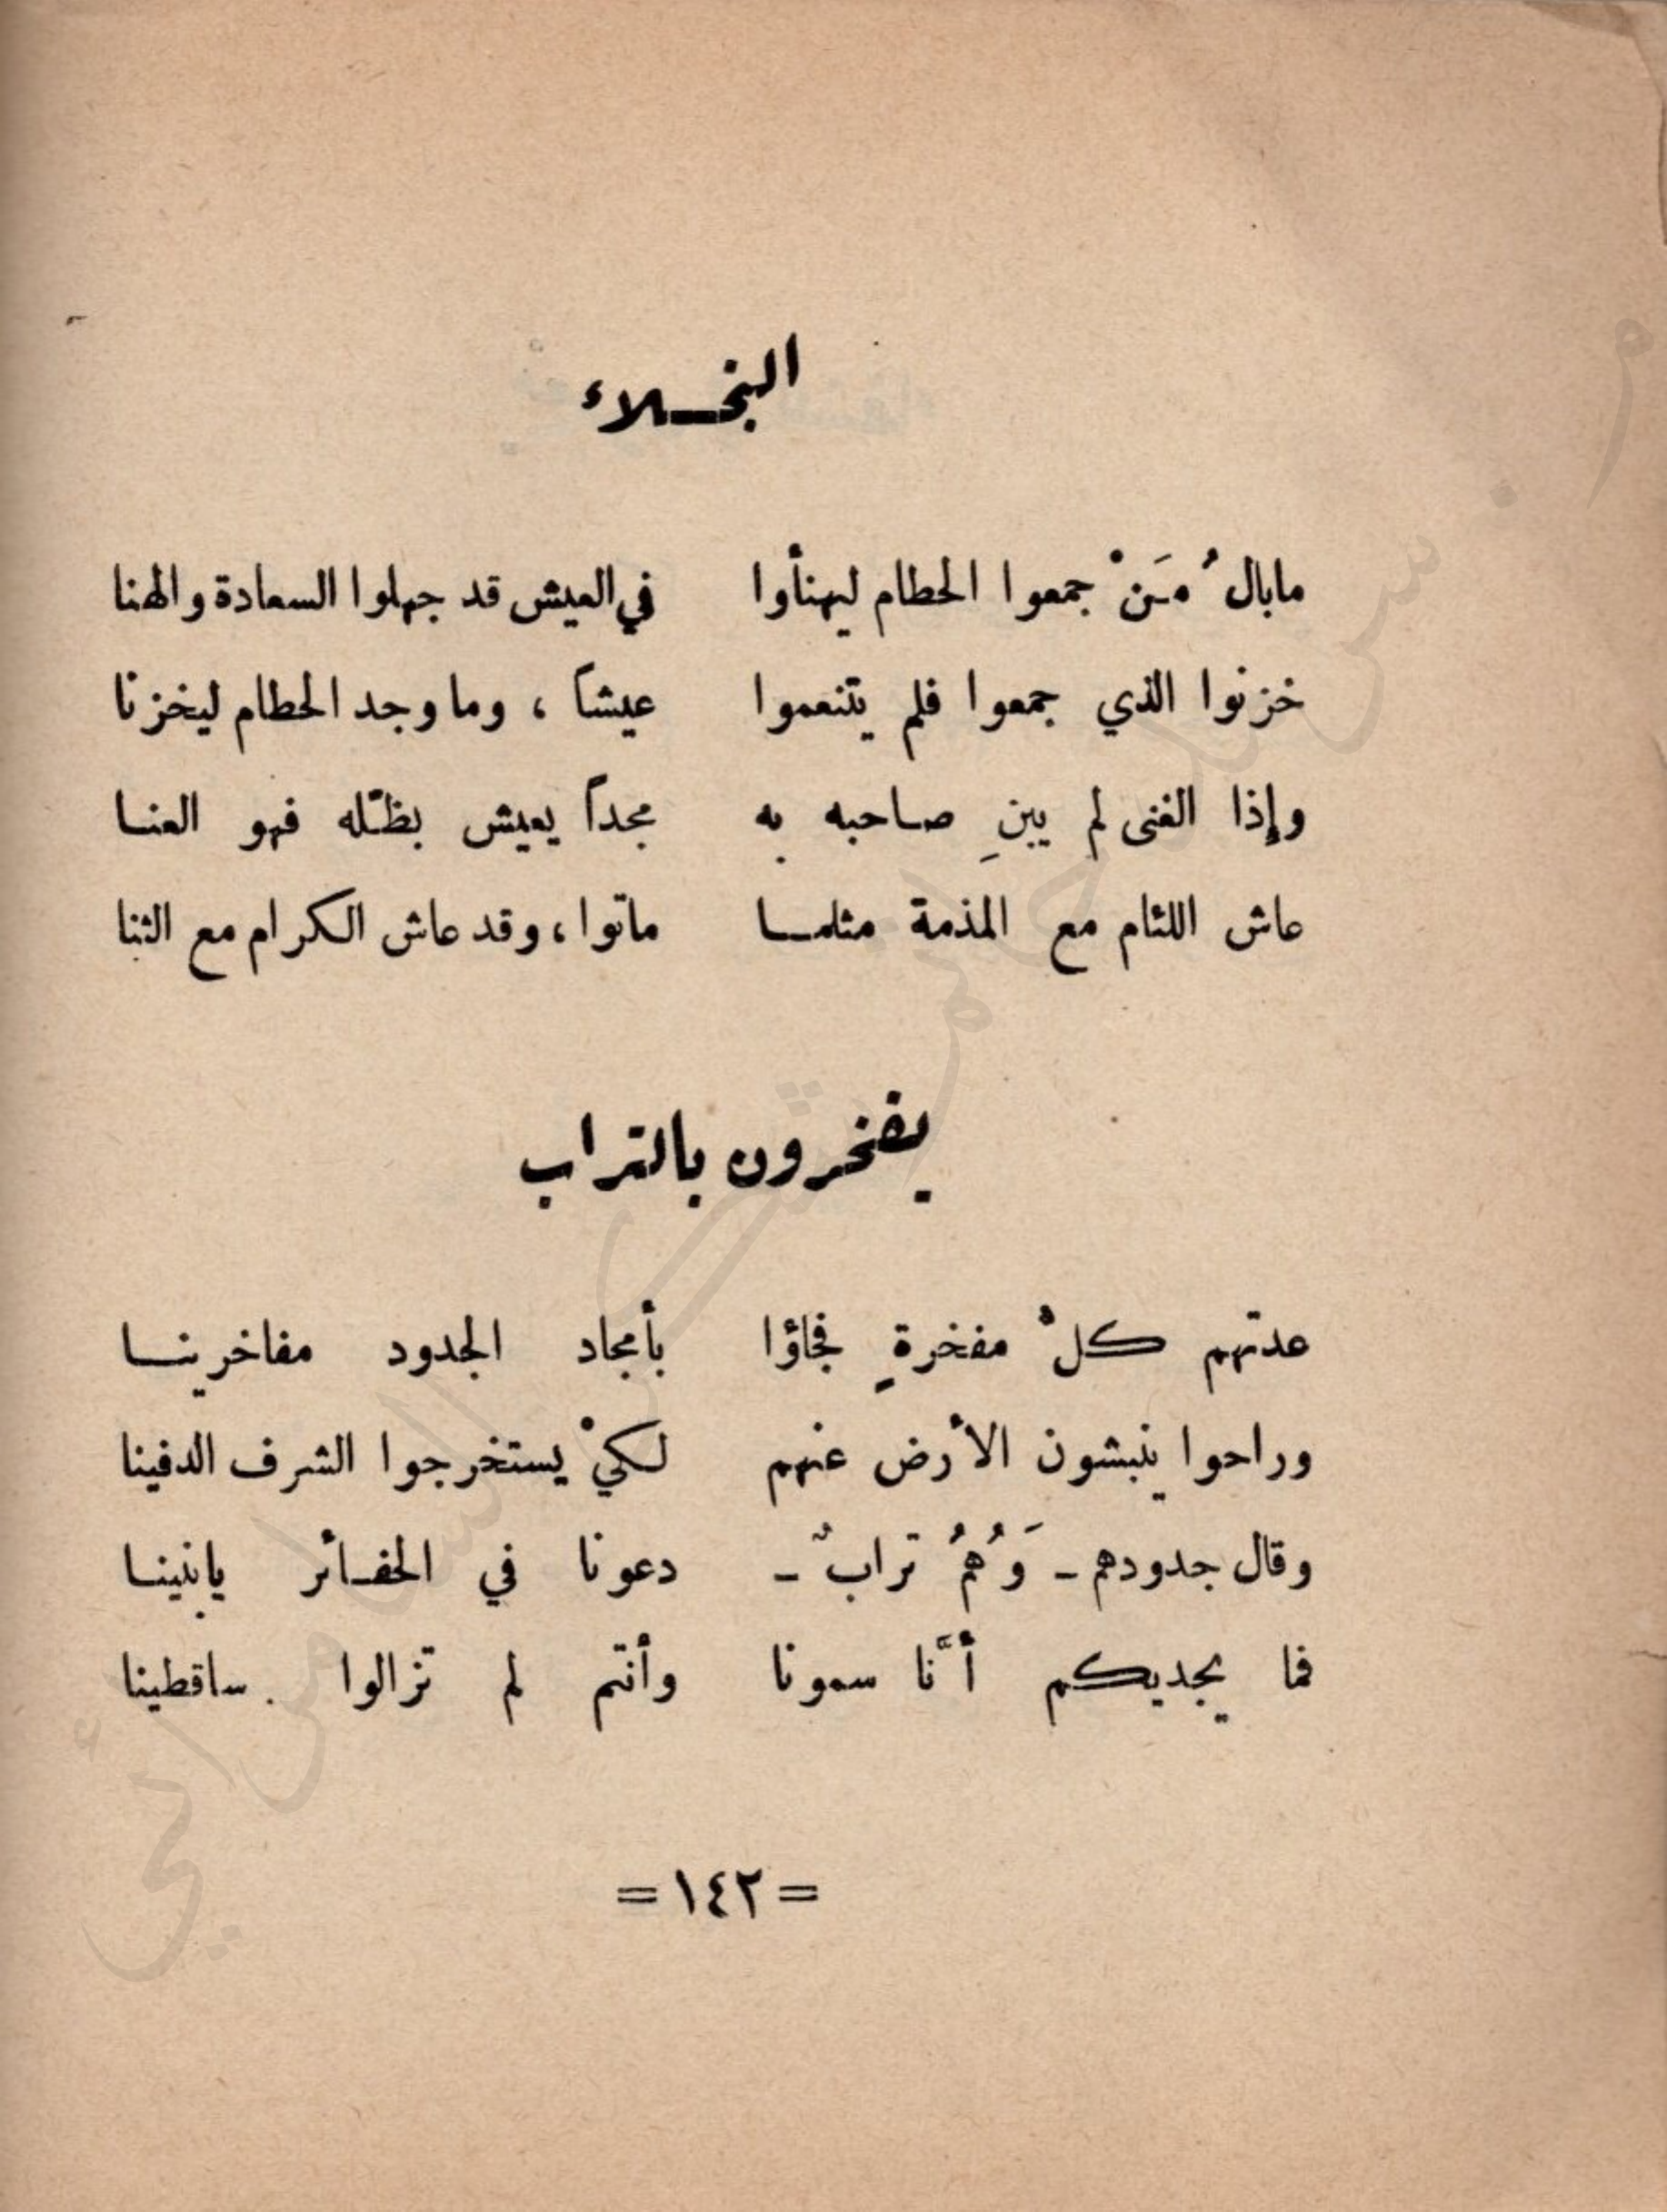 البخلاء
مابالُ مَنْ جمعوا الحطام ليهنأوا في العيش قد جهلوا السعادة والهنا
خزنوا الذي جمعوا فلم يتنعموا عيشاً ، وما وجد الحطام ليخزنا
وإذا الغنى لم يبنِ صاحبه به مجداً يعيش بظله فهو العنا
عاش اللئام مع المذمة مثلما ماتوا ، وقد عاش الكرام مع الثنا
يفخرون بالتراب
عدتهم كلُّ مفخرةٍ فجاؤا بأمجاد الجدود مفاخرينا
وراحوا ينبشون الأرض عنهم لكيْ يستخرجوا الشرف الدفينا
وقال جدودهم ـ وَهُمُ ترابٌ ـ دعونا في الحفائر يابنينا
فما يجديكم أنَّا سمونا وأنتم لم تزالوا ساقطينا
= ١٤٢ =